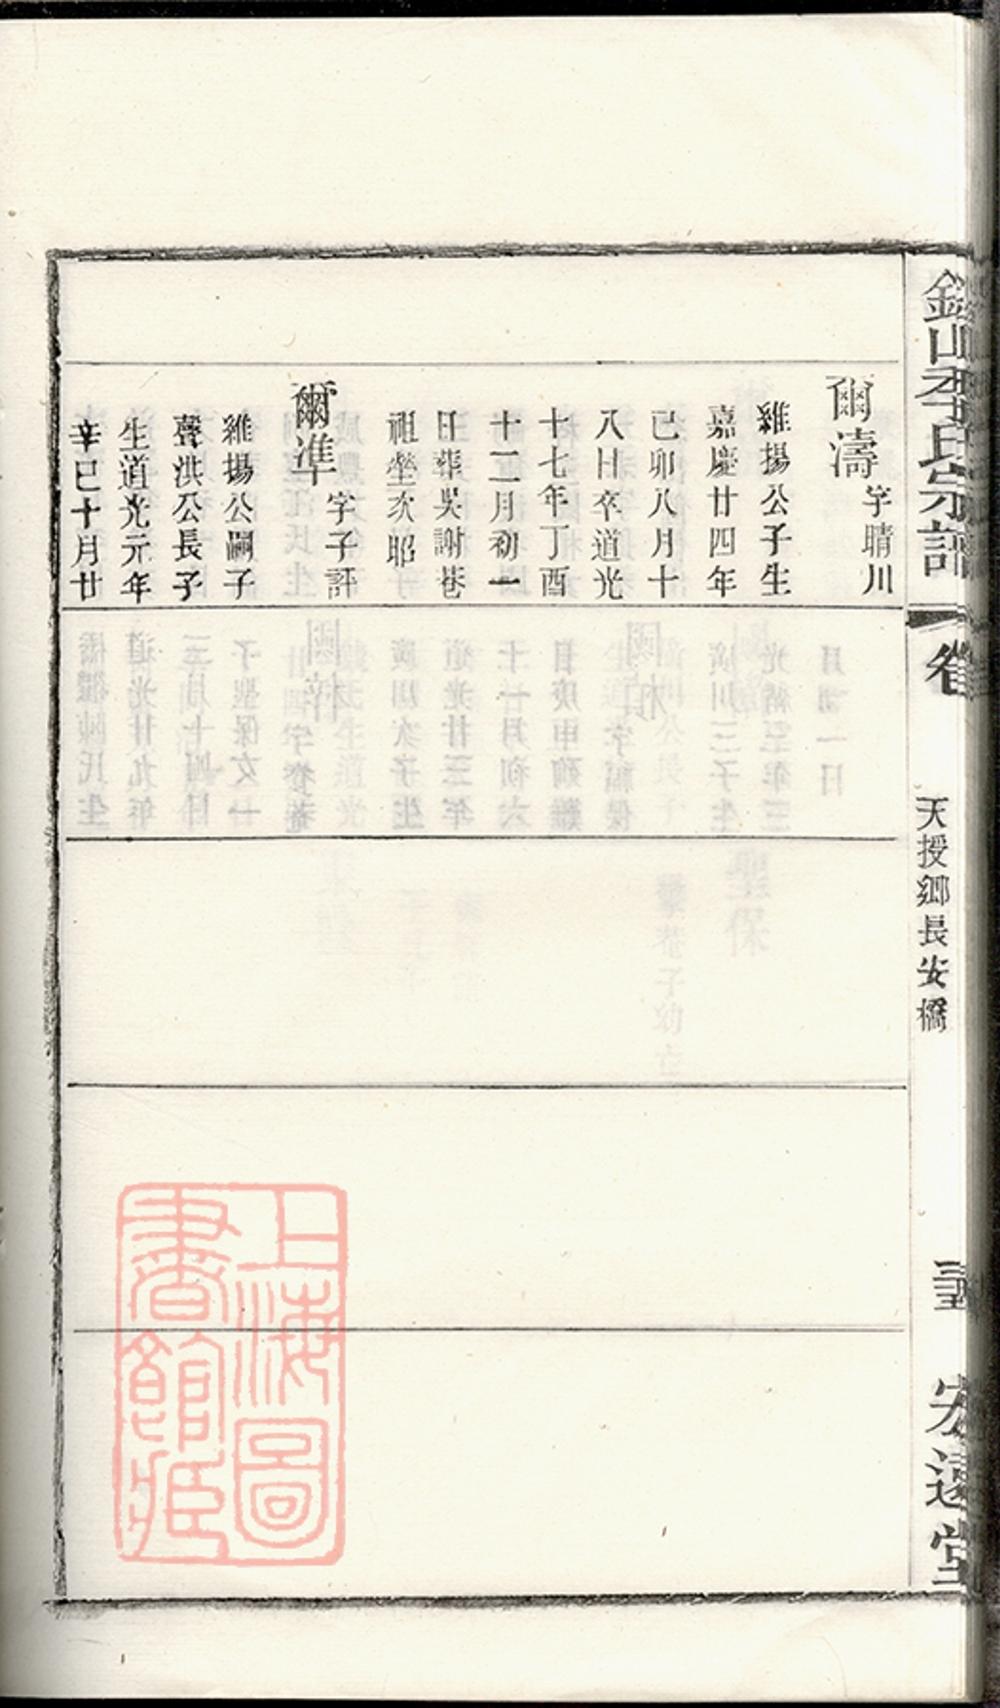 山李氏宗譜
卷
天授鄉長安橋
宏遠堂
爾濤字晴川
維揚公子生
嘉慶廿四年
己卯八月十
八日卒道光
十七年丁酉
十二月初一
日葬吳謝巷
祖塋次昭
爾準字子評
維揚公嗣子
聲洪公長子
生道光元年
辛巳十月廿
上海圖
書館藏